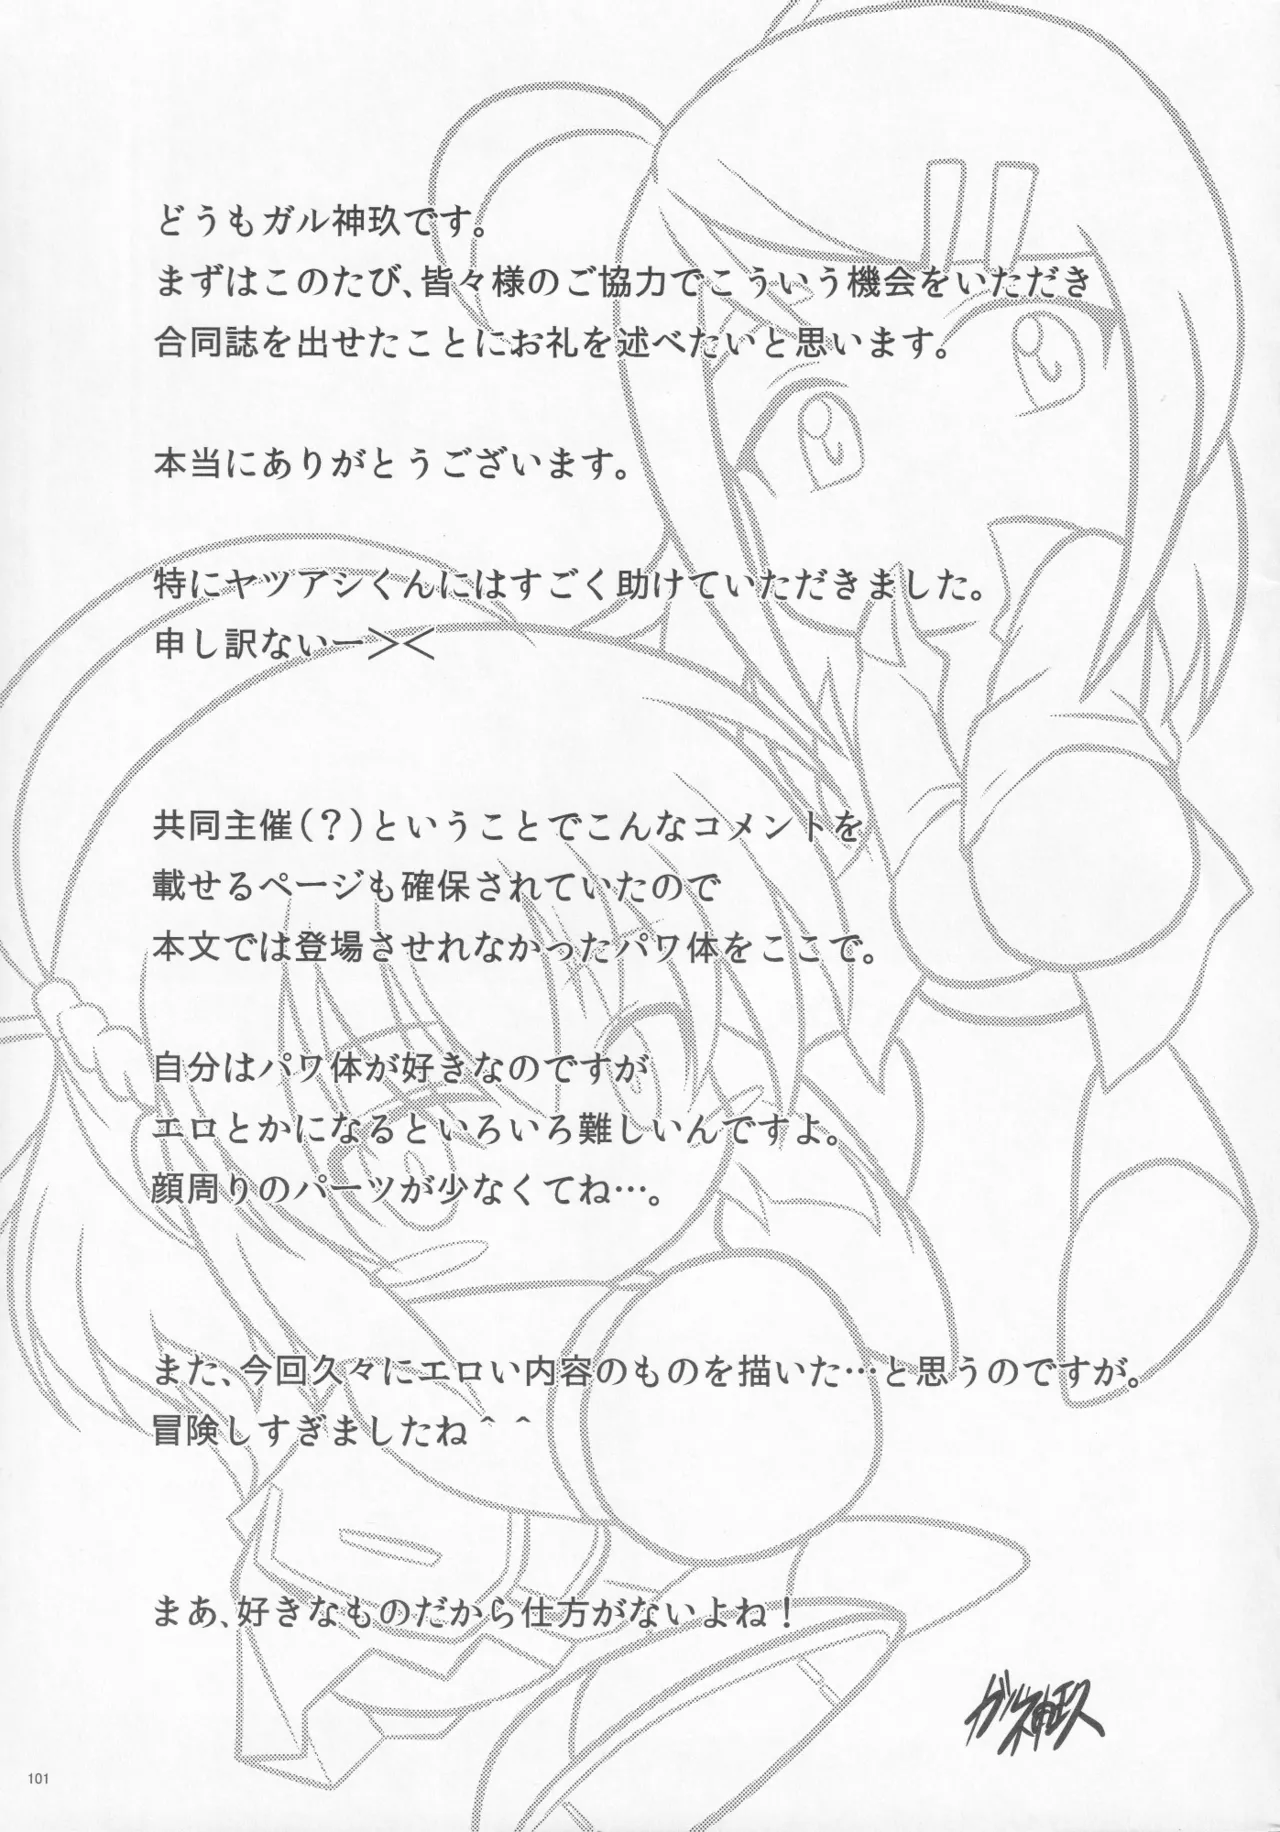 どうもガル神玖です。
まずはこのたび、皆々様のご協力でこういう機会をいただき
合同誌を出せたことにお礼を述べたいと思います。
本当にありがとうございます。
特にヤツアシくんにはすごく助けていただきました。
申し訳ないー＞＜
共同主催(？)ということでこんなコメントを
載せるページも確保されていたので
本文では登場させれなかったパワ体をここで。
自分はパワ体が好きなのですが
エロとかになるといろいろ難しいんですよ。
顔周りのパーツが少なくてね…。
また、今回久々にエロい内容のものを描いた…と思うのですが。
冒険しすぎましたね＾＾
まあ、好きなものだから仕方がないよね！
ガル神玖
101